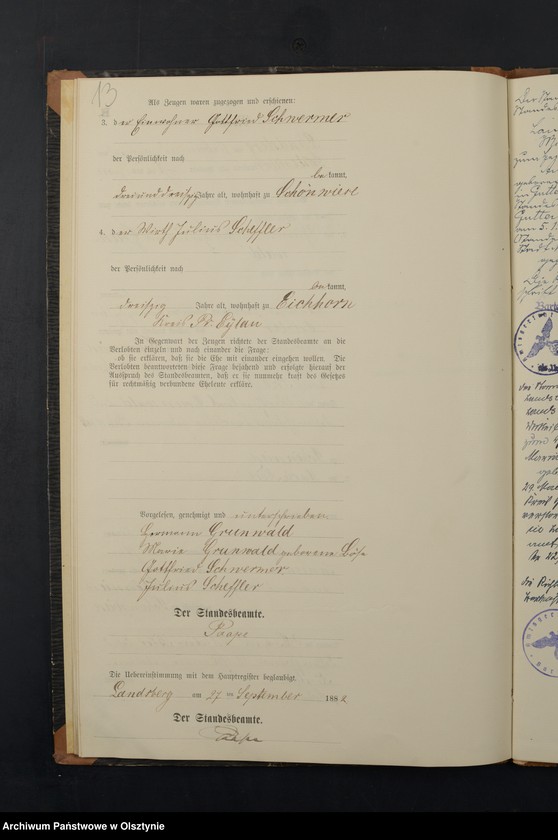 13
Als Zeugen waren zugezogen und erschienen:
3. der Einwohner Gottfried Schwermer
der Persönlichkeit nach
be kannt,
dreiunddreißig Jahre alt, wohnhaft zu Schönwiese
4. der Wirth Julius Scheffler
der Persönlichkeit nach
be kannt,
dreißig Jahre alt, wohnhaft zu Eichhorn
Kreis Pr. Eylau
In Gegenwart der Zeugen richtete der Standesbeamte an die
Verlobten einzeln und nach einander die Frage:
ob sie erklären, daß sie die Ehe mit einander eingehen wollen. Die
Verlobten beantworteten diese Frage bejahend und erfolgte hierauf der
Ausspruch des Standesbeamten, daß er sie nunmehr kraft des Gesetzes
für rechtmäßig verbundene Eheleute erkläre.
Vorgelesen, genehmigt und unterschrieben
Hermann Grunwald
Marie Grunwald geborene Böhse
Gottfried Schwermer
Julius Scheffler
Der Standesbeamte.
Paape
Die Uebereinstimmung mit dem Hauptregister beglaubigt.
Landsberg am 27 ten September 1882
Der Standesbeamte.
Paape
Archiwum Państwowe w Olsztynie